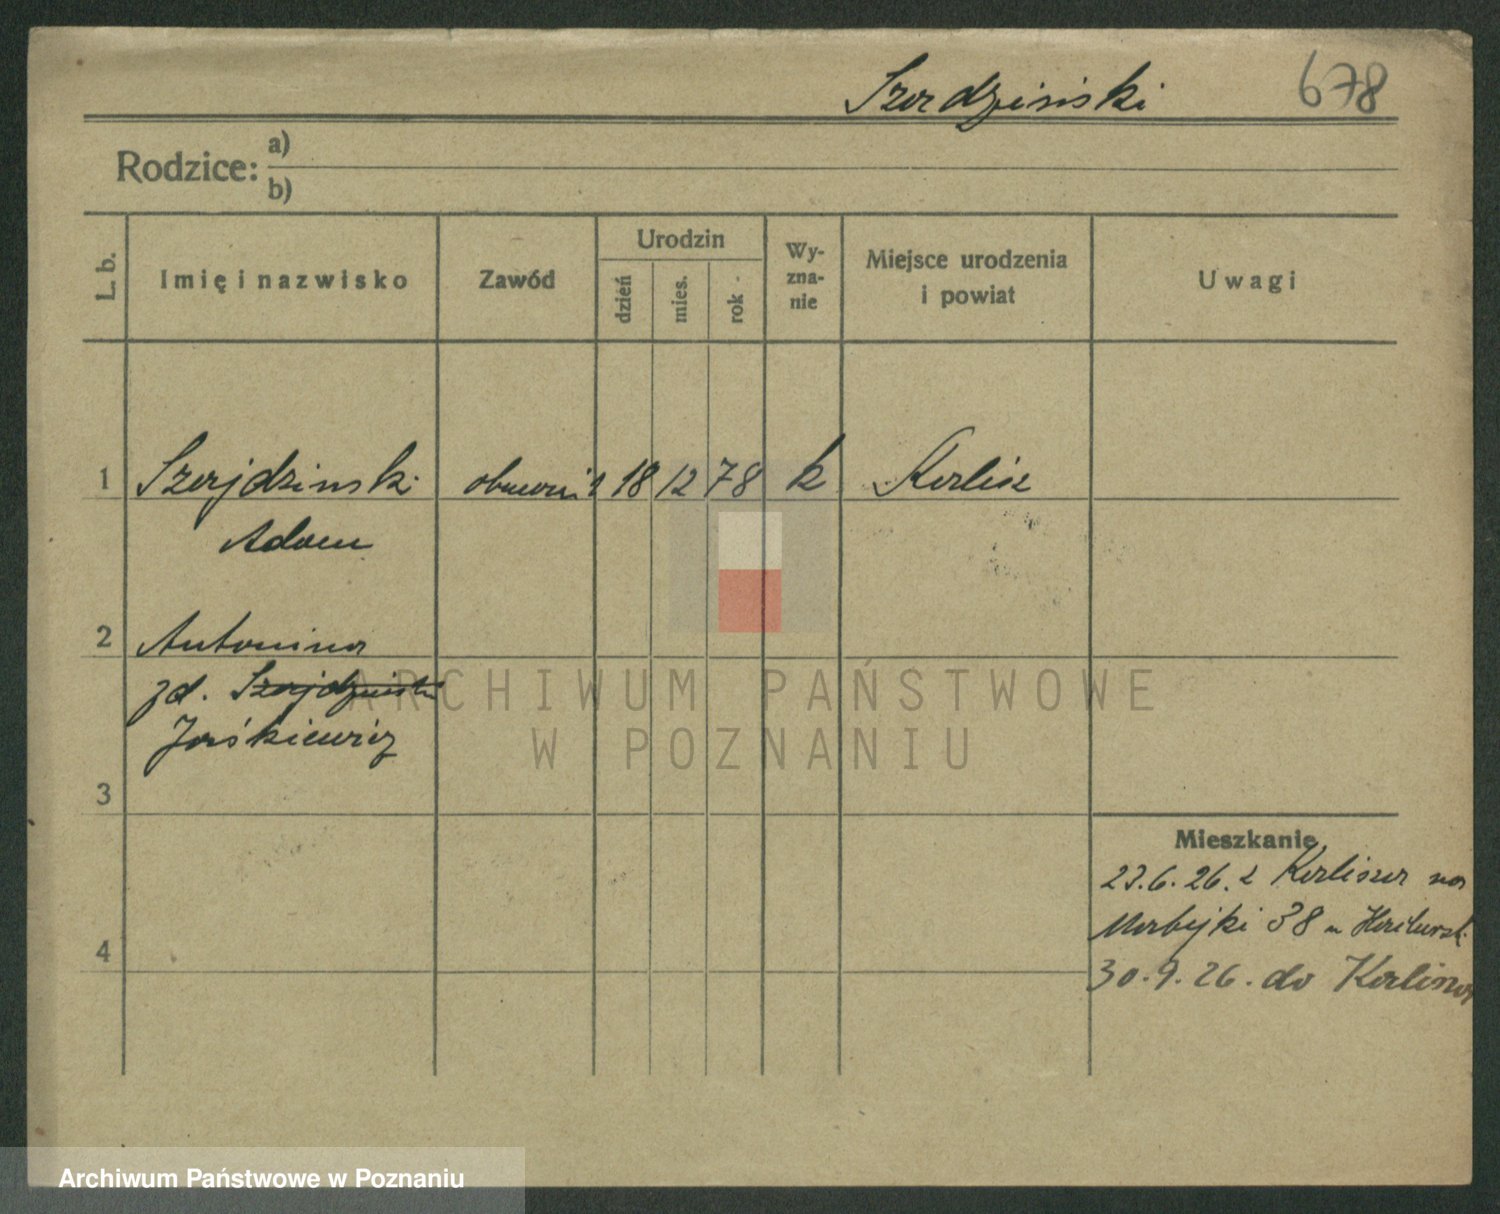 Szerdziński 678
Rodzice: a)
b)
L. b.
Imię i nazwisko
Zawód
Urodzin
dzień
mies.
rok
Wy-
zna-
nie
Miejsce urodzenia
i powiat
Uwagi
1 Szejdzinski 18 12 78 k Kalisz
Adam
2 Antonina
zd. Szejdzinski
Jaśkiewicz
3
Mieszkanie
23.6.26. z Kalisza na
38
4
30.9.26. do Kalisza
ARCHIWUM PAŃSTWOWE
W POZNANIU
Archiwum Państwowe w Poznaniu